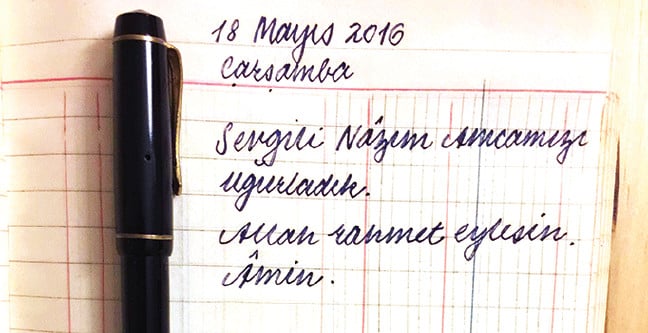 18 Mayıs 2016
Çarşamba
Sevgili Nâzım Amcamızı
uğurladık.
Allah rahmet eylesin.
Âmin.